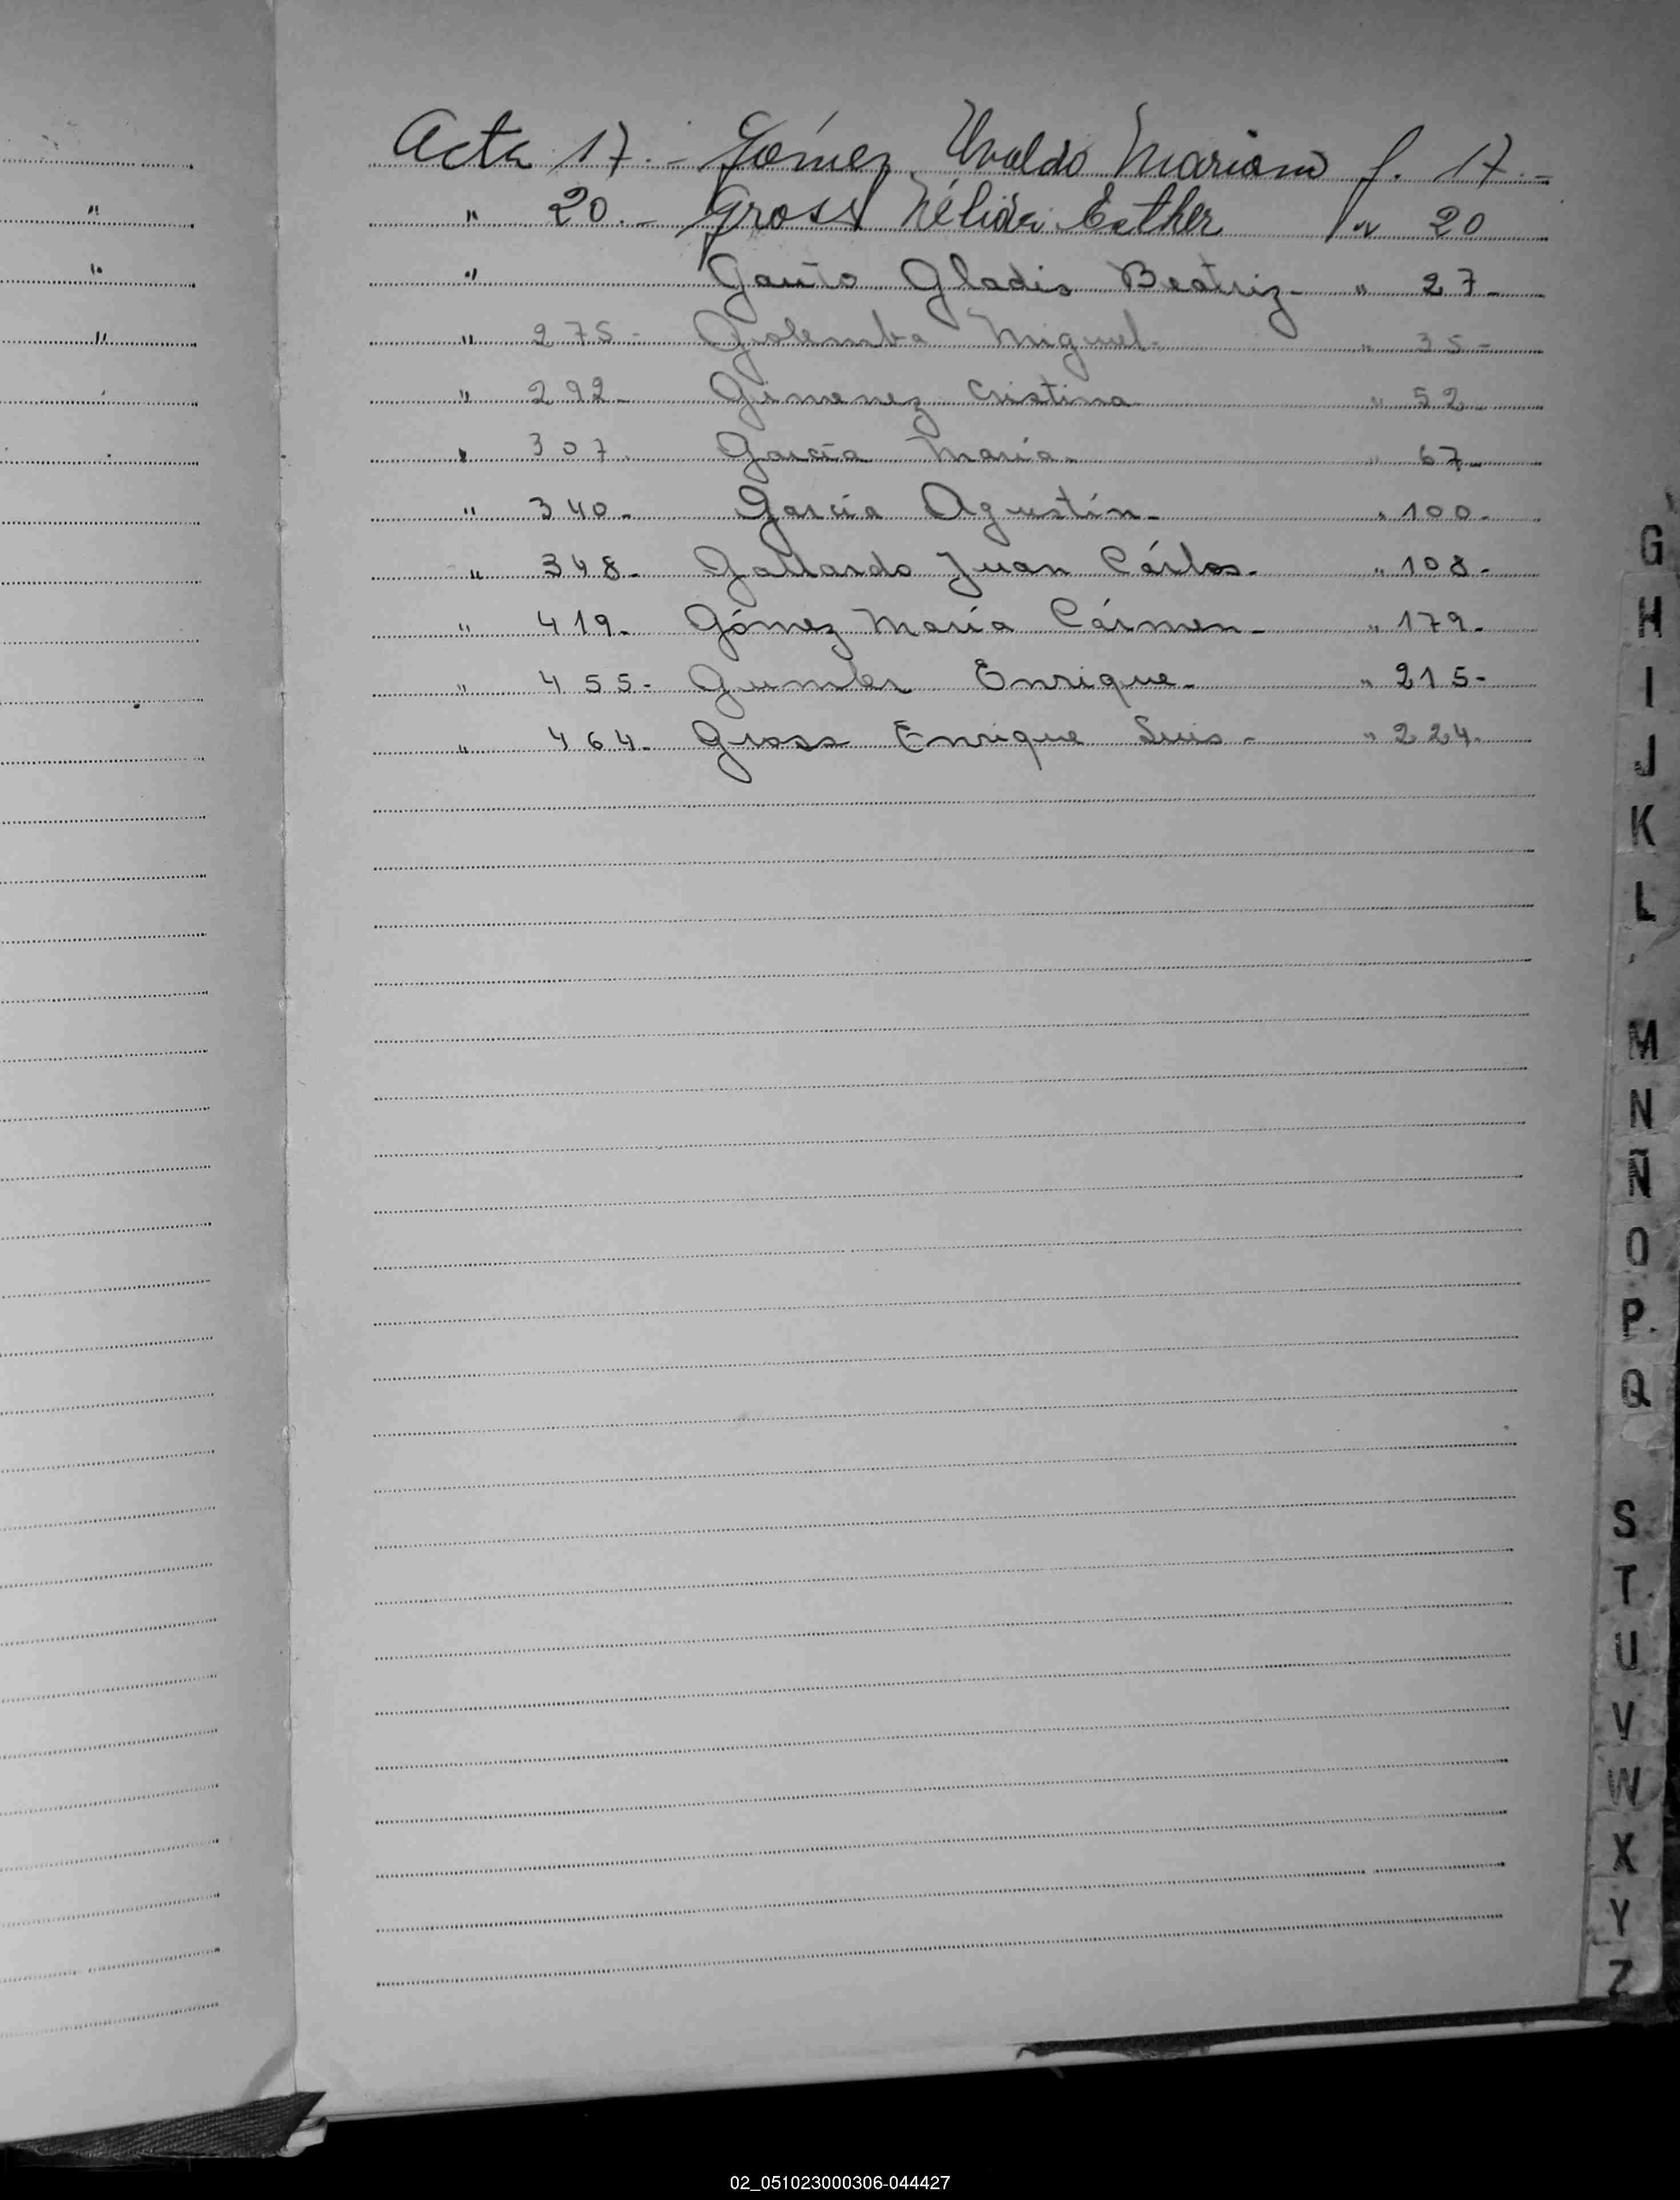 Acta 17.- Gómez Uvaldo Mariano f. 17.-
" 20.- Gross Nélida Esther " 20
" Gauto Gladis Beatriz- " 27-
" 275- Golemba Miguel- " 35-
" 292- Gimenez Cristina " 52-
" 307. García María- " 67-
" 340- García Agustín- " 100-
" 348- Gallardo Juan Cárlos- " 108-
" 419- Gómez María Cármen- " 179-
" 455- Enrique- " 215-
" 464- Gross Enrique Luis- " 224-
G
H
I
J
K
L
M
N
Ñ
O
P.
Q
S
T
U
V
W
X
Y
Z
02_051023000306-044427